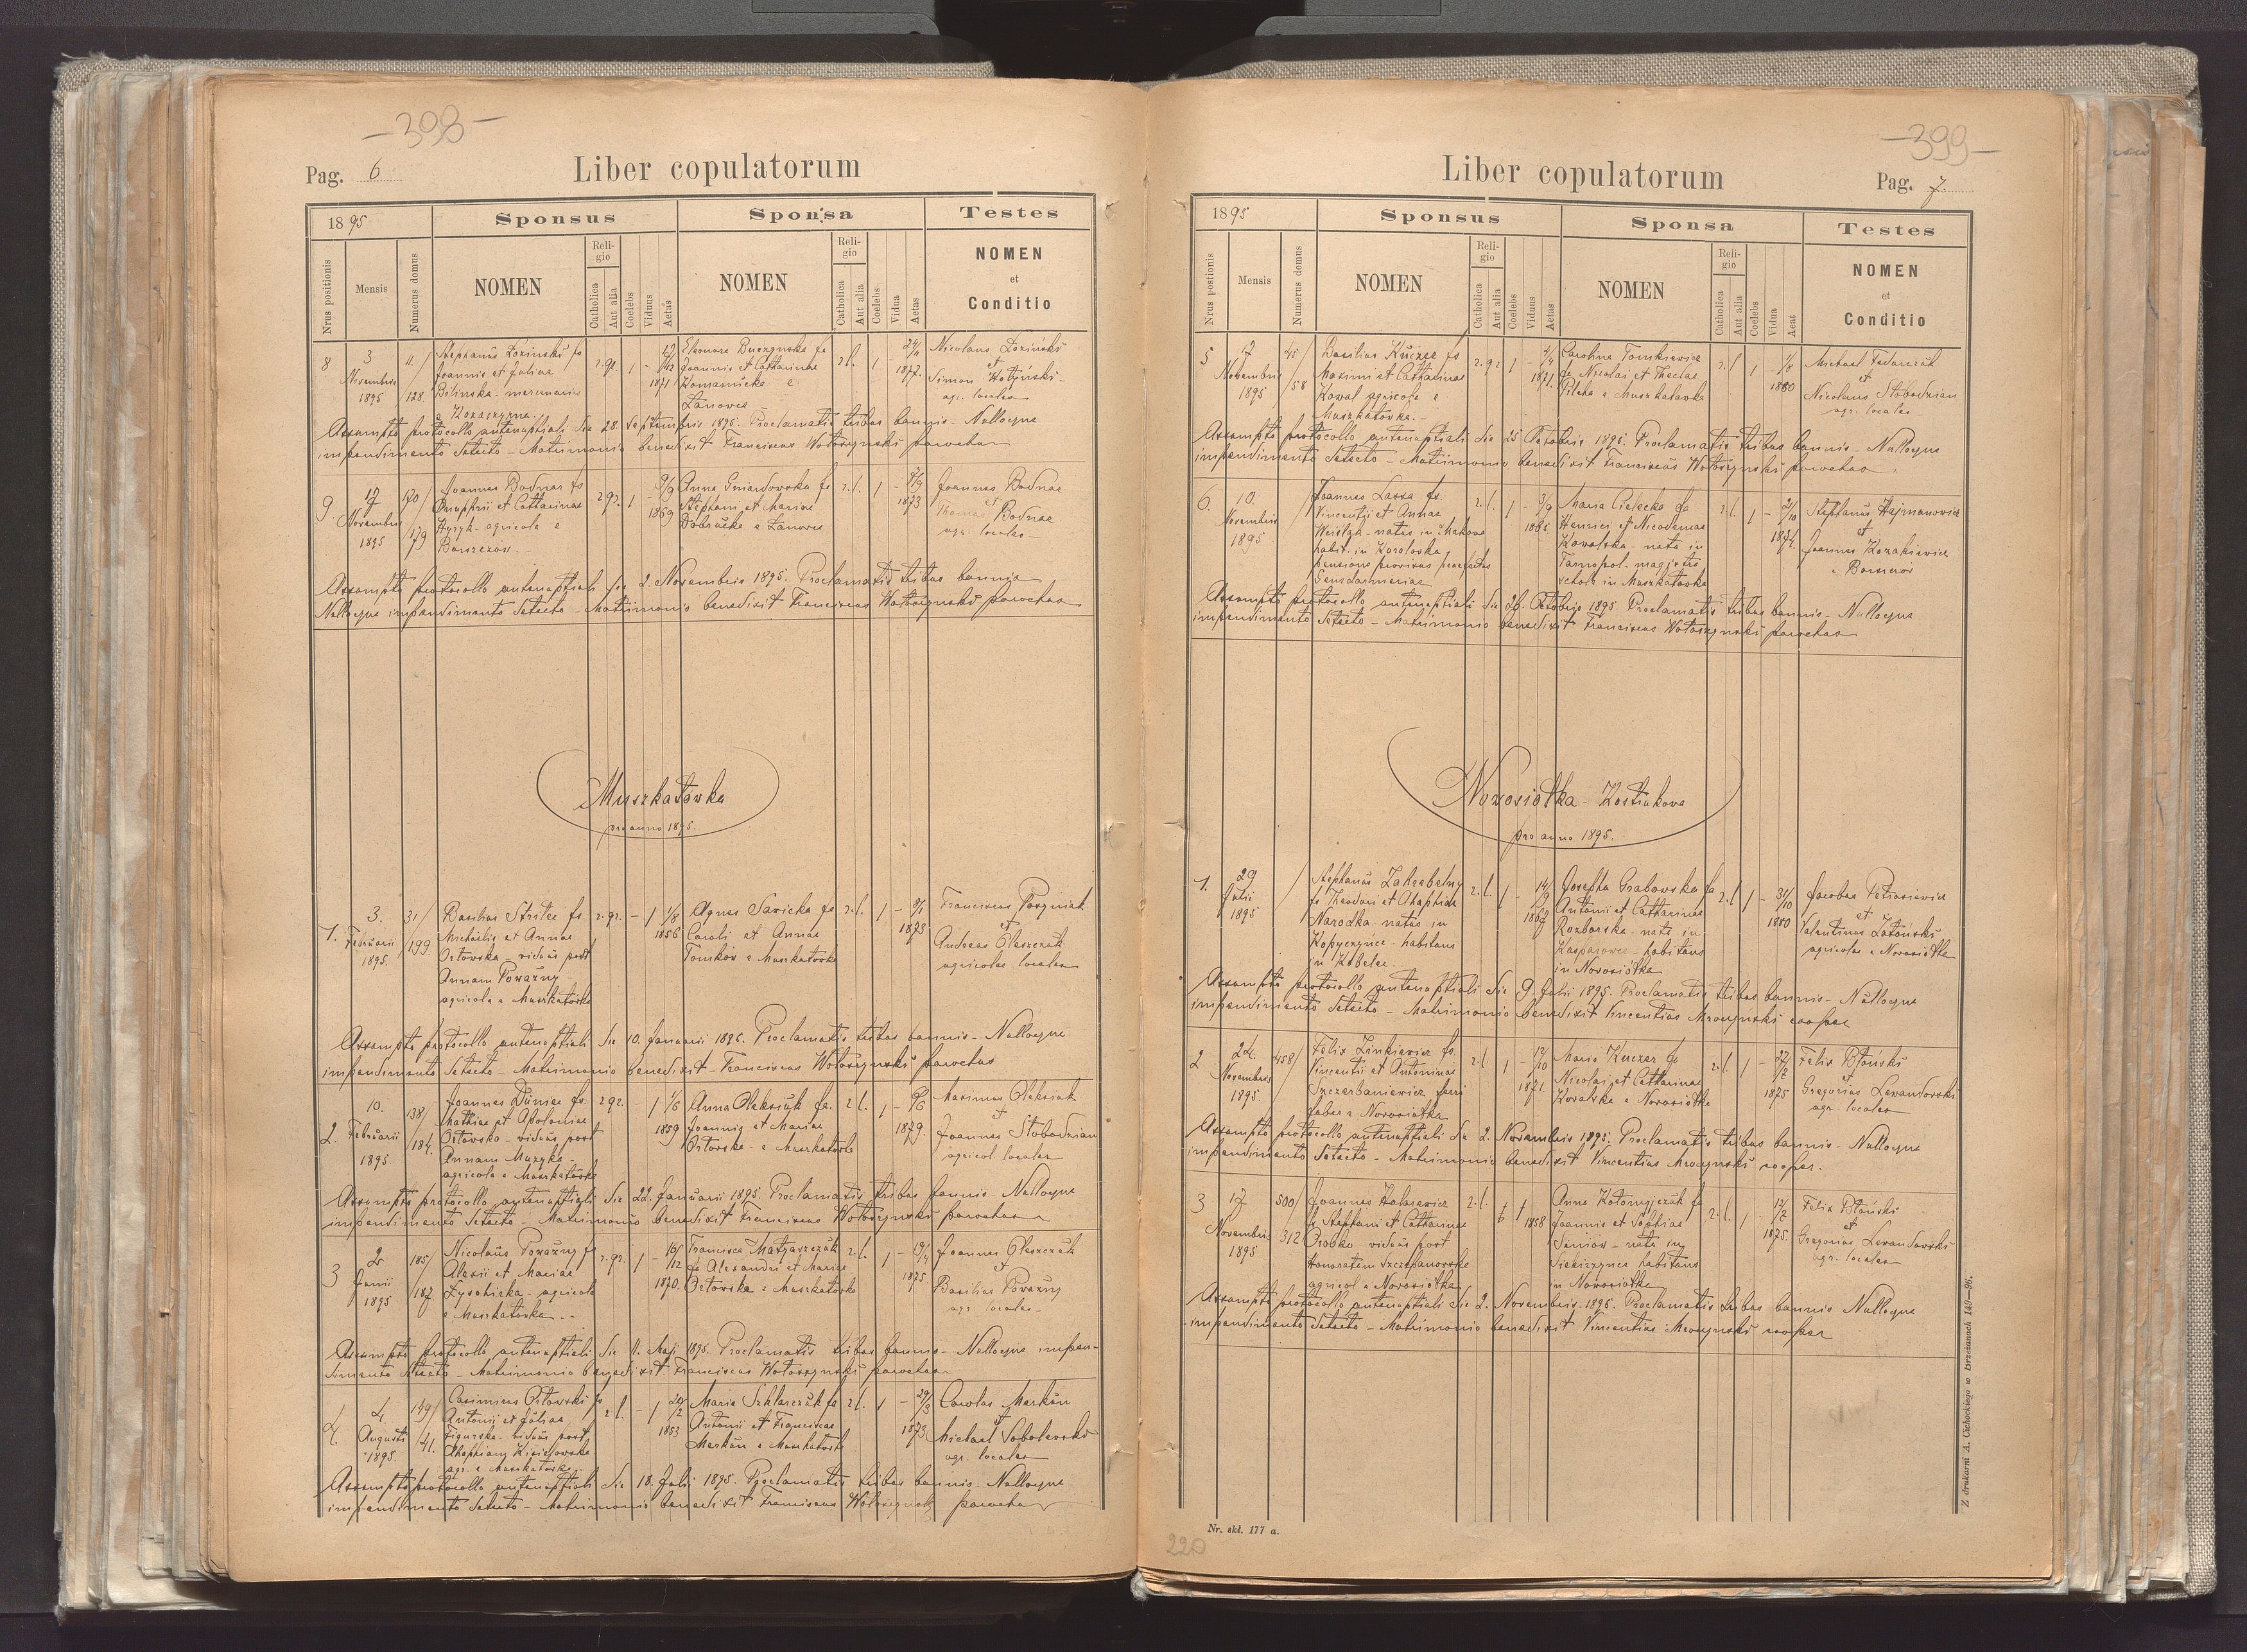 -398-
Pag. 6
Liber copulatorum
1895
Sponsus
Sponsa
Testes
Nrus positionis
Mensis
Numerus domus
NOMEN
Religio
Catholica
Aut alia
Coelebs
Viduus
Aetas
NOMEN
Religio
Catholica
Aut alia
Coelebs
Vidua
Aetas
NOMEN
et
Conditio
8
3
Novembris
1895
11/
128
Stephanus Łoziński fs
Joannis et Juliae
Bilinska - mercenarius
r. gr.
1
-
1871
Eleonora Buczynska fa
Joannis et Catharinae
Romanicka e
Łanowce
r. l.
1
-
1877.
Nicolaus Łoziński
et
Simon Hołyński -
agr. locales
Assumpto protocollo antenuptiali die 28. Septembris 1895. Proclamatis tribus bannis - Nulloque
impendimento detecto - Matrimonio benedixit Franciscus Wołoszynski parochus
9
17
Novembris
1895
170/
179
Joannes Bodnar fs
Onuphrii et Catharinae
Hyzyk - agricola e
Borszczow. -
r. gr.
1
-
9/9
1869
Anna Gniazdowska fa
Stephani et Mariae
Dobrucka e Łanowce
r. l.
1
-
1873
Joannes Bodnar
et
Thomas Bodnar
agr. locales -
Assumpto protocollo antenuptiali die 2. Novembris 1895. Proclamatis tribus bannis
Nulloque impendimento detecto - Matrimonio benedixit Franciscus Wołoszynski parochus
Muszkatówka
pro anno 1895.
1.
3.
Februarii
1895.
31/
199
Basilius Strilec fs
Michaelis et Annae
Ostowska - viduus post
Annam Poważny -
agricola e Muszkatówka
r. gr.
-
1
1/8
1856
Agnes Sawicka fa
Caroli et Annae
Tomków e Muszkatówka
r. l.
1
-
1873
Franciscus Pozyniak
et
Andreas Oleszczuk
agricolae locales
Assumpto protocollo antenuptiali die 10. Januarii 1895. Proclamatis tribus bannis - Nulloque
impendimento detecto - Matrimonio benedixit - Franciscus Wołoszynski parochus
2.
10.
Februarii
1895.
138/
184.
Joannes Duniec fs.
Mathiae et Apoloniae
Ostowska - viduus post
Annam Muzyka -
agricola e Muszkatówka
r. gr.
-
1
1/6
1859
Anna Oleksiuk fa.
Joannis et Mariae
Orłowska - e Muszkatówka
r. l.
1
-
1879.
Maximus Oleksiuk
et
Joannes Słobodzian
agricol. locales
Assumpto protocollo antenuptiali die 22. Januarii 1895. Proclamatis tribus bannis - Nulloque
impendimento detecto - Matrimonio benedixit Franciscus Wołoszynski parochus
3
2
Junii
1895
185/
187
Nicolaus Poważny fs
Alexii et Mariae
Łysohicka - agricola
e Muszkatówka. -
r. gr.
1
-
16/12
1870.
Francisca Matyaszczuk
fa Alexandri et Mariae
Orłowska e Muszkatówka
r. l.
1
-
1875
Joannes Oleszczuk
et
Basilius Poważny
agr. locales -
Assumpto protocollo antenuptiali die 11. Maji 1895. Proclamatis tribus bannis - Nulloque impen-
dimento detecto - Matrimonio benedixit Franciscus Wołoszynski parochus
4.
4.
Augusti
1895
149/
41.
Casimirus Orłowski fs
Antonii et Juliae
Figurska - viduus post
agr. e Muszkatówka
r. l.
-
1
1853
Maria Szklarczuk fa
Antonii et Franciscae
Markun e Muszkatówka
r. l.
1
-
29/3
1873
Carolus Markun
et
Michael Sobolewski
agr. locales
Assumpto protocollo antenuptiali die 18. Julii 1895. Proclamatis tribus bannis - Nulloque
impendimento detecto - Matrimonio benedixit Franciscus Wołoszynski parochus
-399-
Liber copulatorum
Pag. 7.
1895
Sponsus
Sponsa
Testes
Nrus postionis
Mensis
Numerus domus
NOMEN
Religio
Catholica
Aut alia
Coelebs
Viduus
Aetas
NOMEN
Religio
Catholica
Aut alia
Coelebs
Vidua
Aeat
NOMEN
et
Conditio
5
17
Novembris
1895
45/
58
Basilius Kuczer fs
Maximi et Catharinae
Kowal agricola e
Muszkatówka. -
r. gr.
1
-
4/4
1871.
Carolina Tomkiewicz
fa Nicolai et Theclae
Pilcha e Muszkatówka
r. l.
1
-
1/8
1880
Michael Fedorczuk
et
Nicolaus Słobodzian
agr. locales -
Assumpto protocollo antenuptiali die 25 Octobris 1895. Proclamatis tribus bannis - Nulloque
impendimento detecto - Matrimonio benedixit Franciscus Wołoszynski parochus
6.
10.
Novembris
1895
/
Joannes Lassa fs.
Vincentii et Annae
habit. in Korolowka
pensione provisus praefectus
Gensdarmeriae
r. l.
1
-
3/9
Maria Cielecka fa
Henrici et Nicodemae
Kowalska - nata in
Tarnopol - magistra
schol. in Muszkatówka
r. l.
1
-
2/10
1874.
Stephanus Hajmanowicz
et
Joannes Kozakiewicz
e Borszczów
Assumpto protocollo antenuptiali die 26. Octobris 1895. Proclamatis tribus bannis - Nulloque
impendimento detecto - Matrimonio benedixit Franciscus Wołoszynski parochus
Nowosiołka - Kostiukowa
pro anno 1895.
1.
29
Julii
1895
/
Stephanus Zahrebelny
fs Theodori et Ahaphiae
Narodka - natus in
Kopyczynce - habitans
in Kobelec.
r. l.
1
-
14/9
1867
Josepha Grabowska fa
Antonii et Catharinae
Rozborska - nata in
Kasparowce - habitans
in Nowosiołka
r. l.
1
-
31/10
1850
Jacobus Petrasiewicz
et
Valentinus Zatoński
agricolae e Nowosiołka
Assumpto protocollo antenuptiali die 9. Julii 1895. Proclamatis tribus bannis - Nulloque
impendimento detecto - Matrimonio benedixit Vincentius Mroczynski cooper
2
24.
Novembris
1895.
458/
Felix Zinkiewicz fs.
Vincentii et Antoninae
Szczerbaniewicz ferri
faber e Nowosiołka
r. l.
1
-
12/10
1871.
Maria Kuczer fa
Nicolai et Catharinae
Kowalska e Nowosiołka
r. l.
1
-
27/2
1875
Felix Błoński
et
Gregorius Lewandowski
agr. locales
Assumpto protocollo antenuptiali die 2. Novembris 1895. Proclamatis tribus bannis - Nulloque
impendimento detecto - Matrimonio benedixit Vincentius Mroczynski cooper.
3
17
Novembris
1895
500/
312
Joannes Halasiewicz
fs Stephani et Catharinae
Probko - viduus post
Honoratam Szczepanowska
agricol. e Nowosiołka
r. l.
1
1858
Anna Kołomyjczuk fa
Joannis et Sophiae
Seniów - nata in
Siekierzynce habitans
in Nowosiołka
r. l.
1
-
12/2
1875.
Felix Błoński
et
Gregorius Lewandowski
agr. locales
Assumpto protocollo antenuptiali die 2. Novembris - 1895. Proclamatis tribus bannis Nulloque
impendimento detecto - Matrimonio benedixit Vincentius Mroczynski cooper
Z drukarni A. Cichockiego w Brzeżanach 149-96.
Nr. skł. 177 a.
220